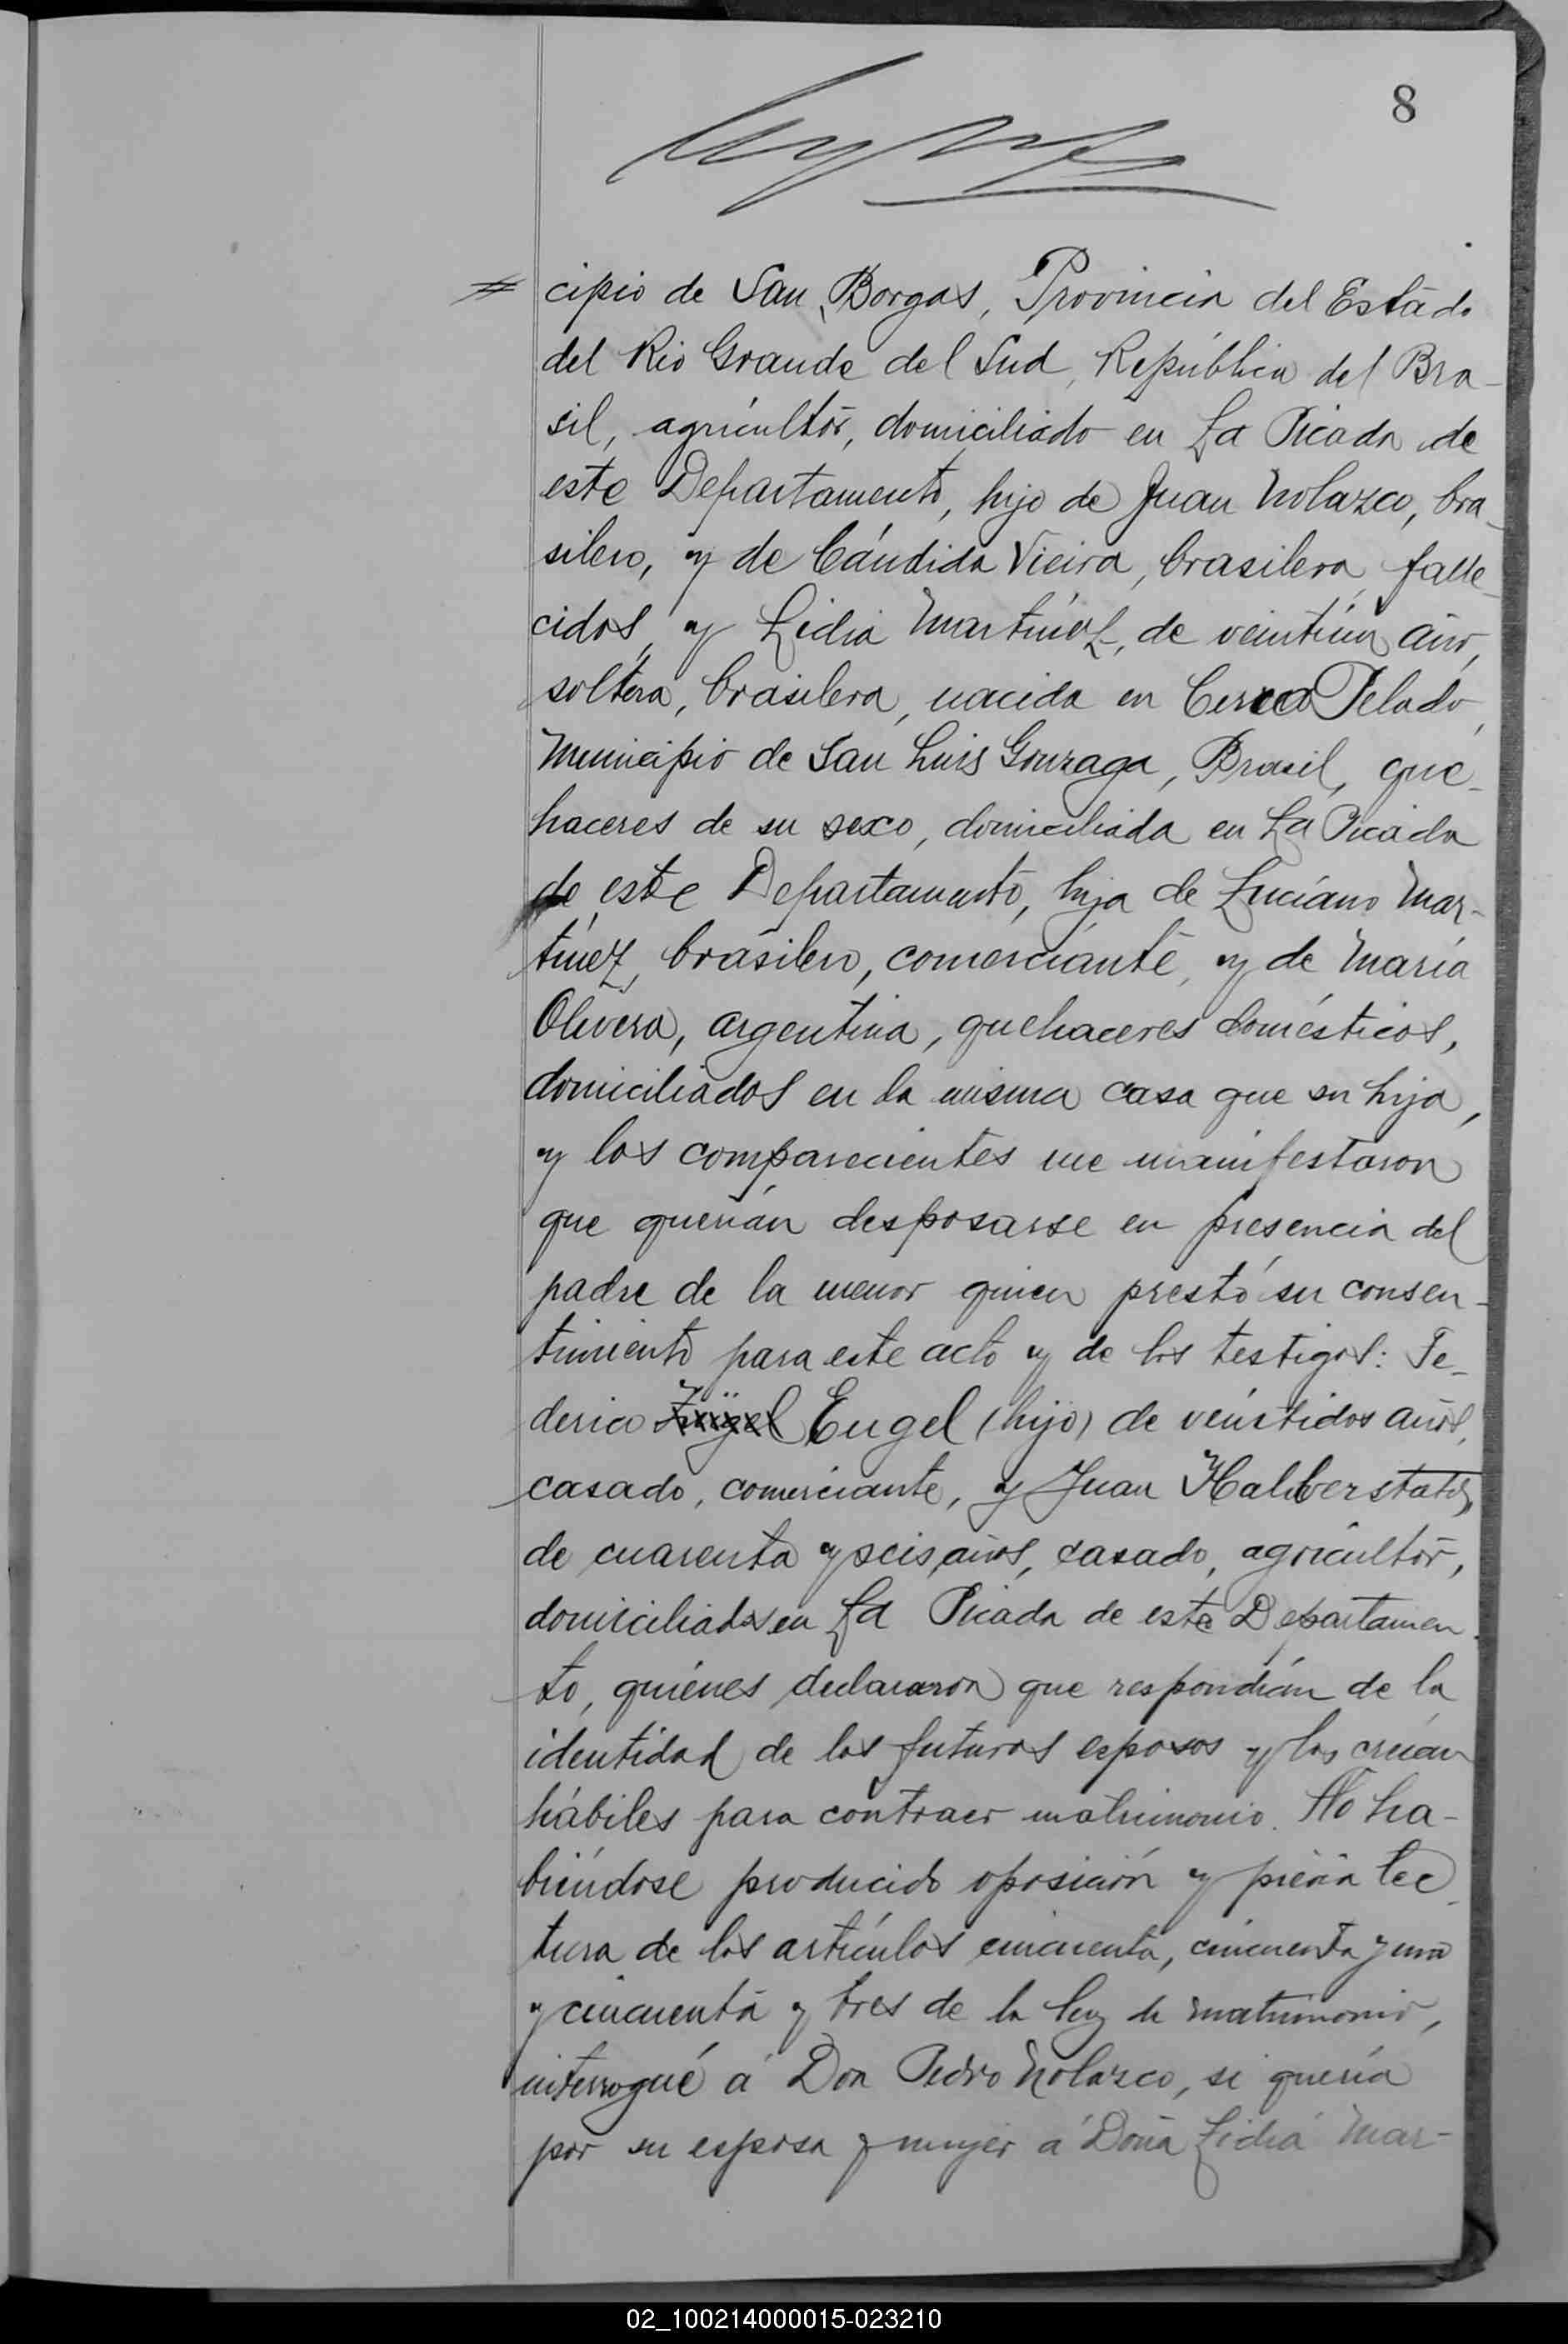 8
cipio de San Borgas, Provincia del Estado
del Rio Grande del Sud, República del Bra-
sil, agricultor, domiciliado en La Picada de
este Departamento, hijo de Juan Nolazco, bra-
silero, y de Cándida Vieira, brasilera, falle-
cidos, y Lidia Martínez, de veintiún años,
soltera, brasilera, nacida en Cerro Pelado,
Municipio de San Luis Gonzaga, Brasil, que-
haceres de su sexo, domiciliada en La Picada
de este Departamento, hija de Luciano Mar-
tínez, brasilero, comerciante, y de María
Olivera, argentina, quehaceres domésticos,
domiciliados en la misma casa que su hija,
y los comparecientes me manifestaron
que querían desposarse en presencia del
padre de la menor quien prestó su consen-
timiento para este acto y de los testigos: Fe-
derico Engel (hijo) de veintidos años,
casado, comerciante, y Juan Halberstadt,
de cuarenta y seis años, casado, agricultor,
domiciliados en La Picada de este Departamen-
to, quiénes declararon que respondían de la
identidad de los futuros esposos y los creían
hábiles para contraer matrimonio. No ha-
biéndose producido oposición y prévia lec-
tura de los artículos cincuenta, cincuenta y uno
y cincuenta y tres de la ley de matrimonio,
interrogué á Don Pedro Nolazco, si quería
por su esposa y mujer á Doña Lidia Mar-
02_100214000015-023210